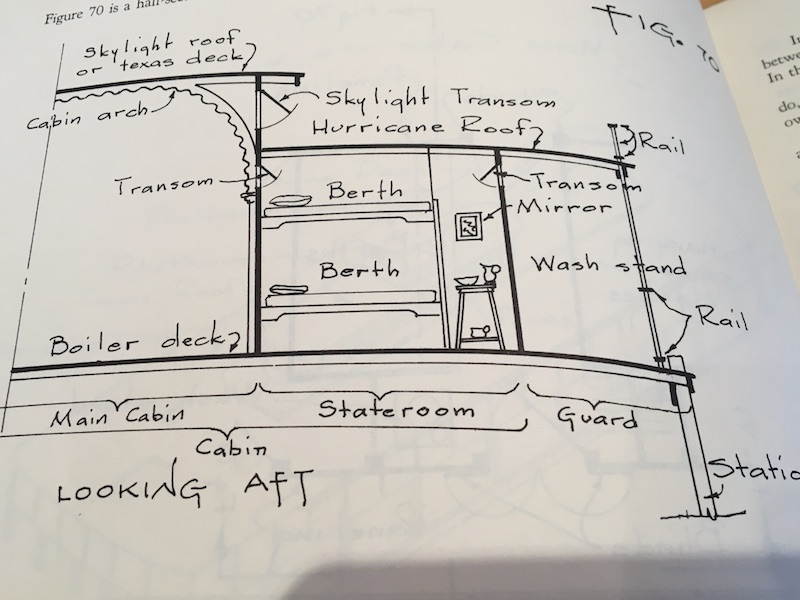 Figure 70 is a half-
FIG. 70
Skylight roof
or texas deck
Cabin arch
Skylight Transom
Hurricane Roof
Rail
Transom
Berth
Transom
Mirror
Berth
Wash stand
Rail
Boiler deck
Main Cabin
Stateroom
Guard
Cabin
LOOKING AFT
Static
In
betwe
In th
do,
ow